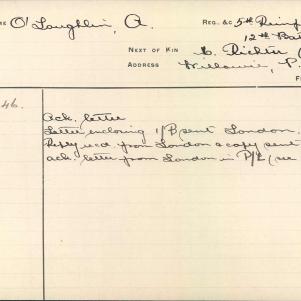 ME O'Loughlin, A. REG. &c 5th Reinf
12th Bat
NEXT OF KIN C. Richter (
ADDRESS Willowie, P.
F
46. Ack. letter
Letter enclosing 1/P sent London.
Reply recd from London & copy sent
ack. letter from London in P/L (see